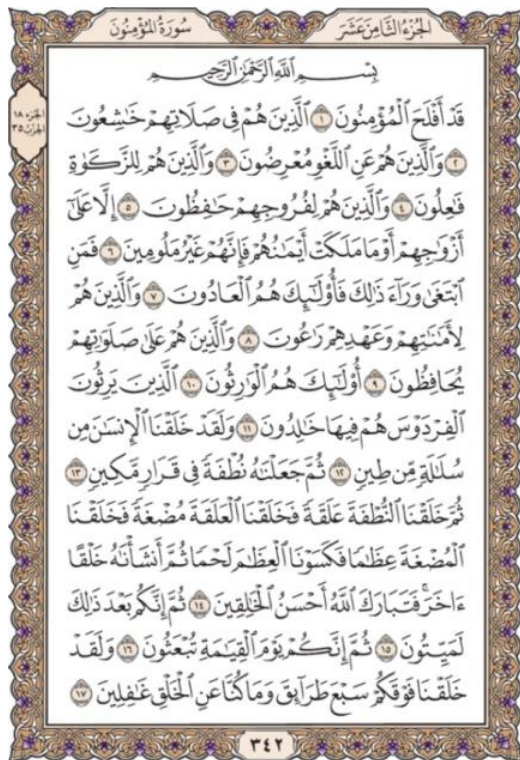 سُورَةُ المُؤْمِنُونَ
الجُزْءُ الثَّامِنَ عَشَرَ
الجزء ١٨
الحزب ٣٥
بِسْمِ اللَّهِ الرَّحْمَٰنِ الرَّحِيمِ
قَدْ أَفْلَحَ الْمُؤْمِنُونَ ١ الَّذِينَ هُمْ فِي صَلَاتِهِمْ خَٰشِعُونَ
٢ وَالَّذِينَ هُمْ عَنِ اللَّغْوِ مُعْرِضُونَ ٣ وَالَّذِينَ هُمْ لِلزَّكَوٰةِ
فَٰعِلُونَ ٤ وَالَّذِينَ هُمْ لِفُرُوجِهِمْ حَٰفِظُونَ ٥ إِلَّا عَلَىٰٓ
أَزْوَٰجِهِمْ أَوْ مَا مَلَكَتْ أَيْمَٰنُهُمْ فَإِنَّهُمْ غَيْرُ مَلُومِينَ ٦ فَمَنِ
ابْتَغَىٰ وَرَآءَ ذَٰلِكَ فَأُو۟لَٰٓئِكَ هُمُ الْعَادُونَ ٧ وَالَّذِينَ هُمْ
لِأَمَٰنَٰتِهِمْ وَعَهْدِهِمْ رَٰعُونَ ٨ وَالَّذِينَ هُمْ عَلَىٰ صَلَوَٰتِهِمْ
يُحَافِظُونَ ٩ أُو۟لَٰٓئِكَ هُمُ الْوَٰرِثُونَ ١٠ الَّذِينَ يَرِثُونَ
الْفِرْدَوْسَ هُمْ فِيهَا خَٰلِدُونَ ١١ وَلَقَدْ خَلَقْنَا الْإِنسَٰنَ مِن
سُلَٰلَةٍ مِّن طِينٍ ١٢ ثُمَّ جَعَلْنَٰهُ نُطْفَةً فِي قَرَارٍ مَّكِينٍ ١٣
ثُمَّ خَلَقْنَا النُّطْفَةَ عَلَقَةً فَخَلَقْنَا الْعَلَقَةَ مُضْغَةً فَخَلَقْنَا
الْمُضْغَةَ عِظَٰمًا فَكَسَوْنَا الْعِظَٰمَ لَحْمًا ثُمَّ أَنشَأْنَٰهُ خَلْقًا
ءَاخَرَ ۚ فَتَبَارَكَ اللَّهُ أَحْسَنُ الْخَٰلِقِينَ ١٤ ثُمَّ إِنَّكُم بَعْدَ ذَٰلِكَ
لَمَيِّتُونَ ١٥ ثُمَّ إِنَّكُمْ يَوْمَ الْقِيَٰمَةِ تُبْعَثُونَ ١٦ وَلَقَدْ
خَلَقْنَا فَوْقَكُمْ سَبْعَ طَرَآئِقَ وَمَا كُنَّا عَنِ الْخَلْقِ غَٰفِلِينَ ١٧
٣٤٢